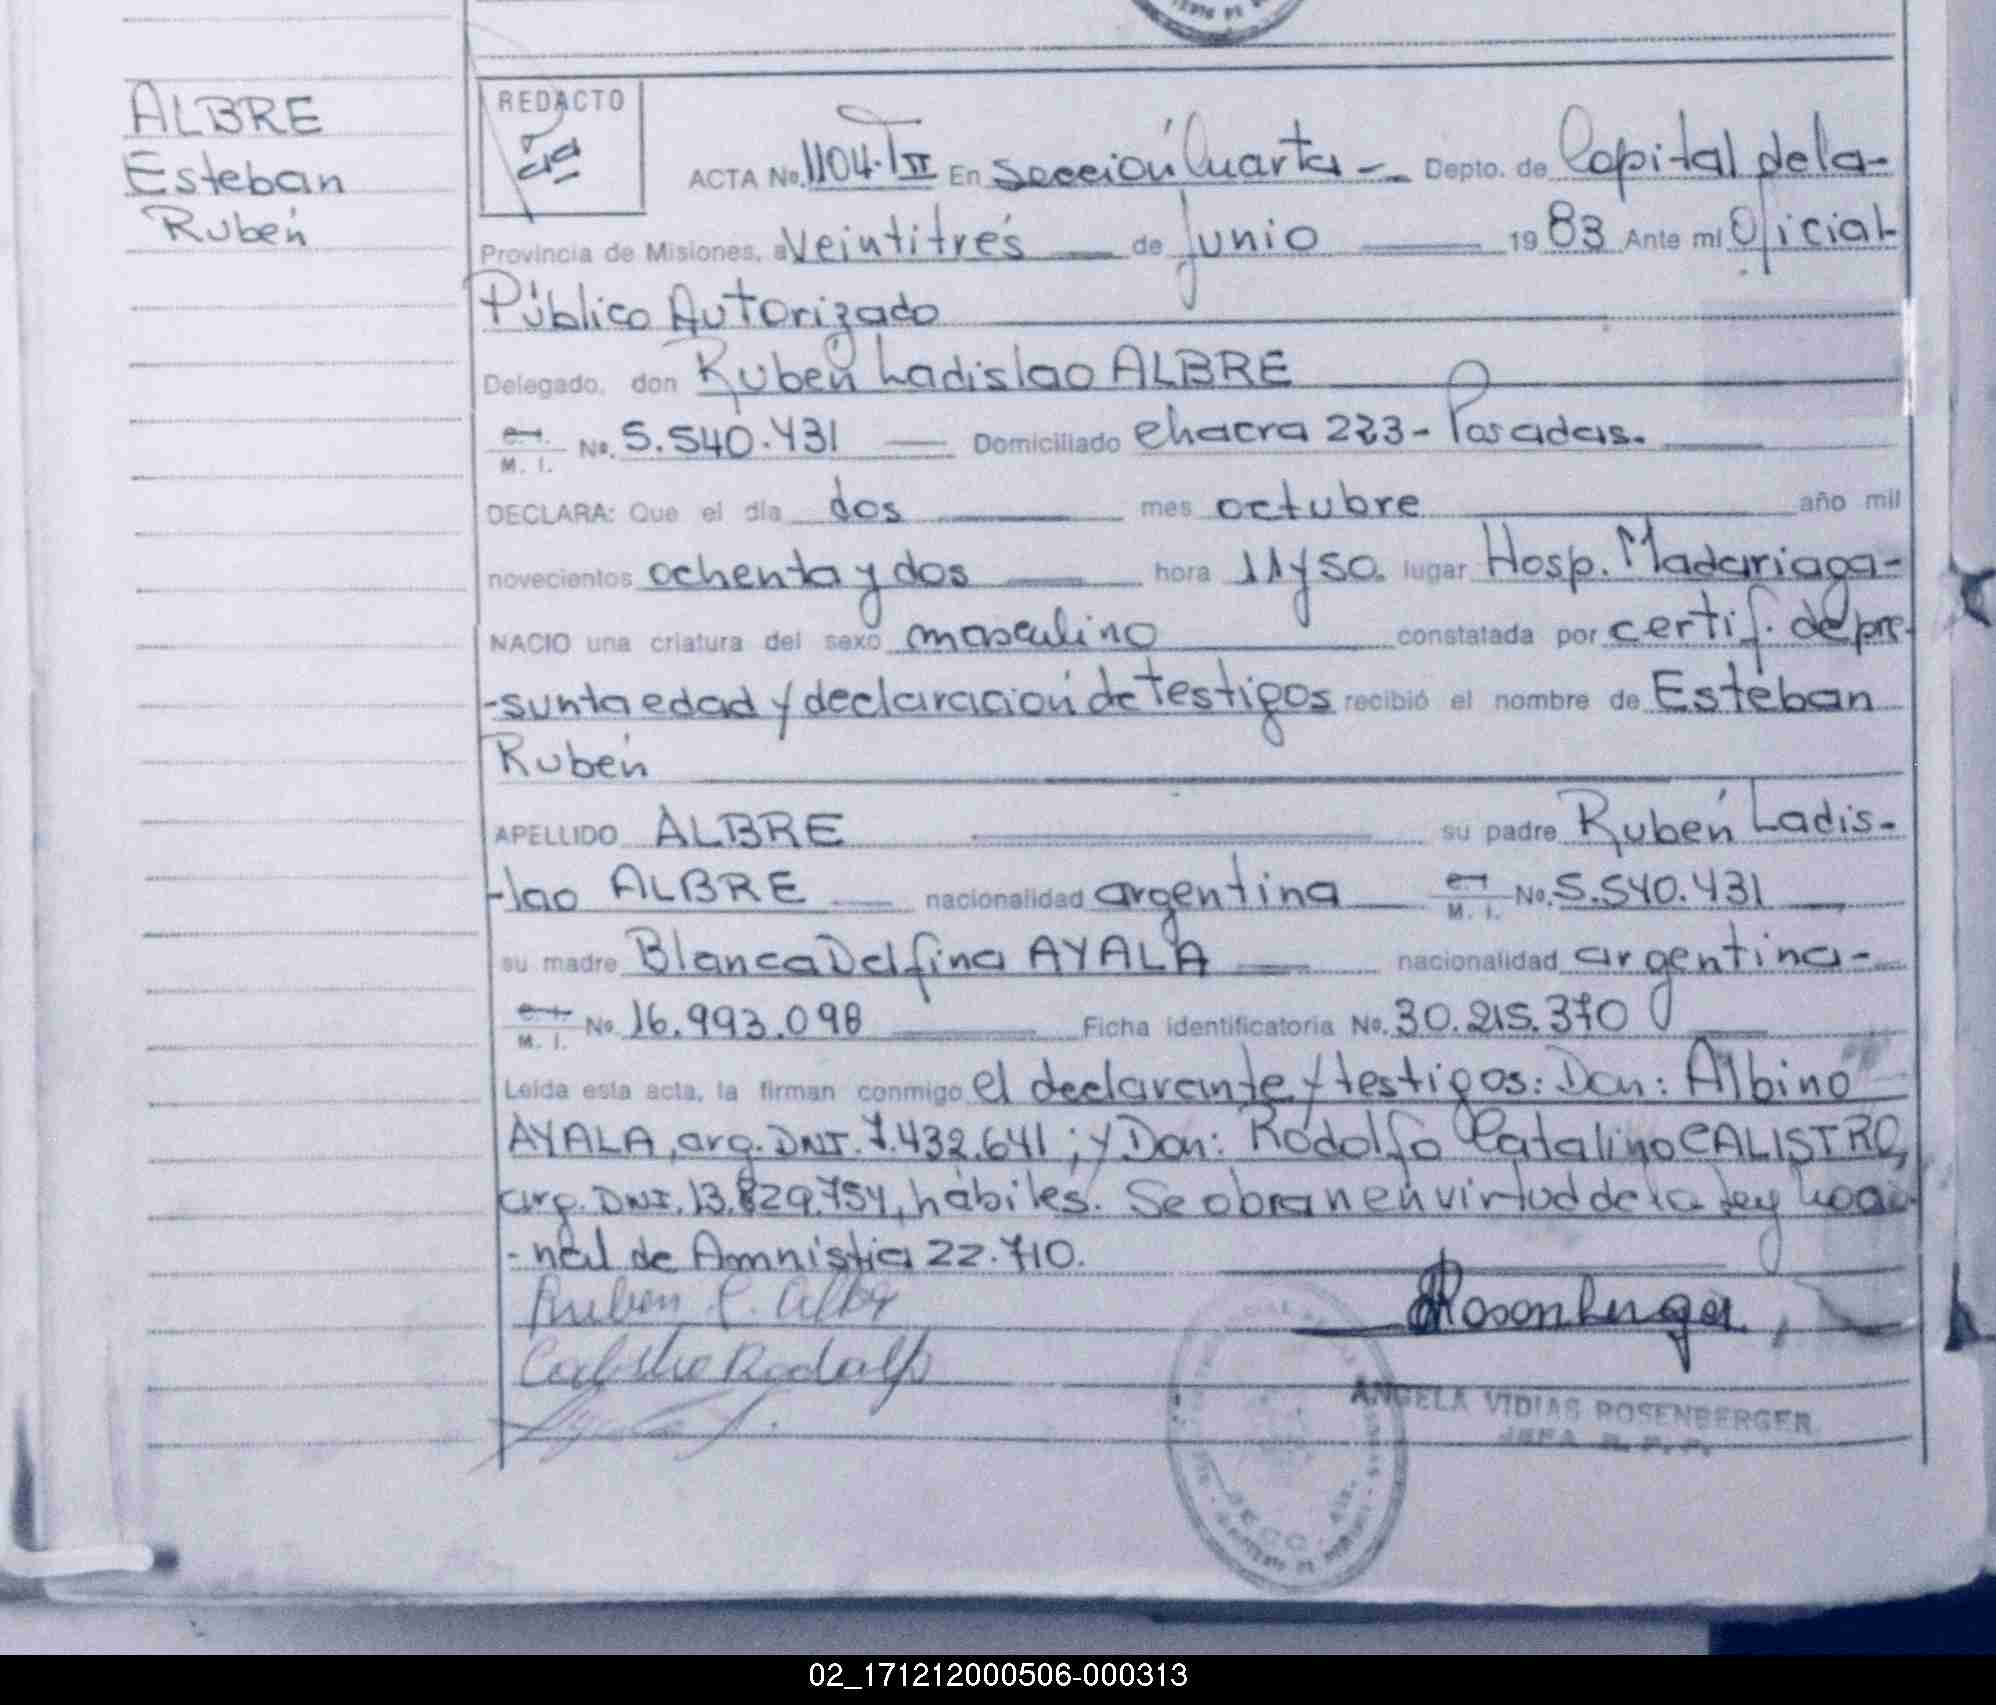 ALBRE
Esteban
Rubén
REDACTO
ACTA No. 1104.TII En Sección Cuarta - Depto. de Capital de la-
Provincia de Misiones, a Veintitrés de Junio 1983 Ante mi Oficial
Público Autorizado
Delegado, don Rubén Ladislao ALBRE
C.I. M. I. No. 5.540.431 Domiciliado Chacra 223 - Posadas.
DECLARA: Que el día dos mes octubre año mil
novecientos ochenta y dos hora 11 y 50. lugar Hosp. Madariaga-
NACIO una criatura del sexo masculino constatada por certif. de pre-
-sunta edad y declaración de testigos recibió el nombre de Esteban
Rubén
APELLIDO ALBRE su padre Rubén Ladis-
-lao ALBRE nacionalidad argentina M. I. No. 5.540.431
su madre Blanca Delfina AYALA nacionalidad argentina-
M. I. No. 16.993.098 Ficha identificatoria No. 30.215.370
Leida esta acta, la firman conmigo el declarante y testigos: Don: Albino
AYALA, arg. DNI. 7.432.641; y Don: Rodolfo Catalino CALISTRO,
arg. DNI. 13.829.754, hábiles. Se obran en virtud de la Ley
-nal de Amnistia 22.710.
Ruben L. Albre
Calistro Rodolfo
Rosenberger
ANGELA VIDIAS ROSENBERGER
JEFA R. P. P.
02_171212000506-000313